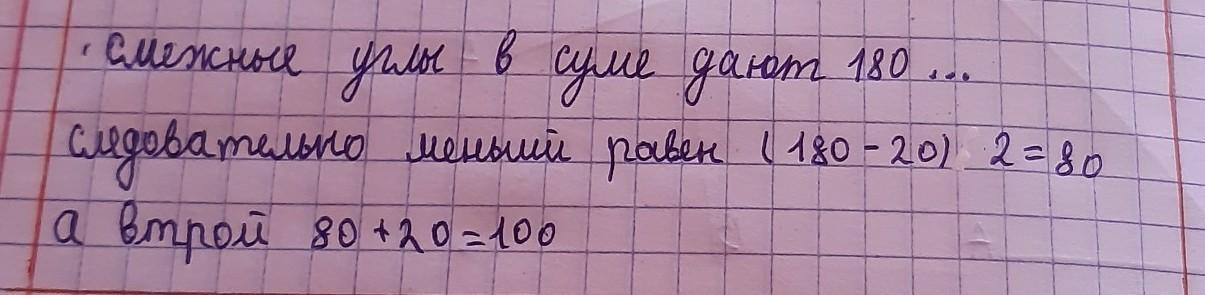 смежные углы в суме дают 180 ...
следовательно меньший равен (180-20) 2=80
а втрой 80+20=100